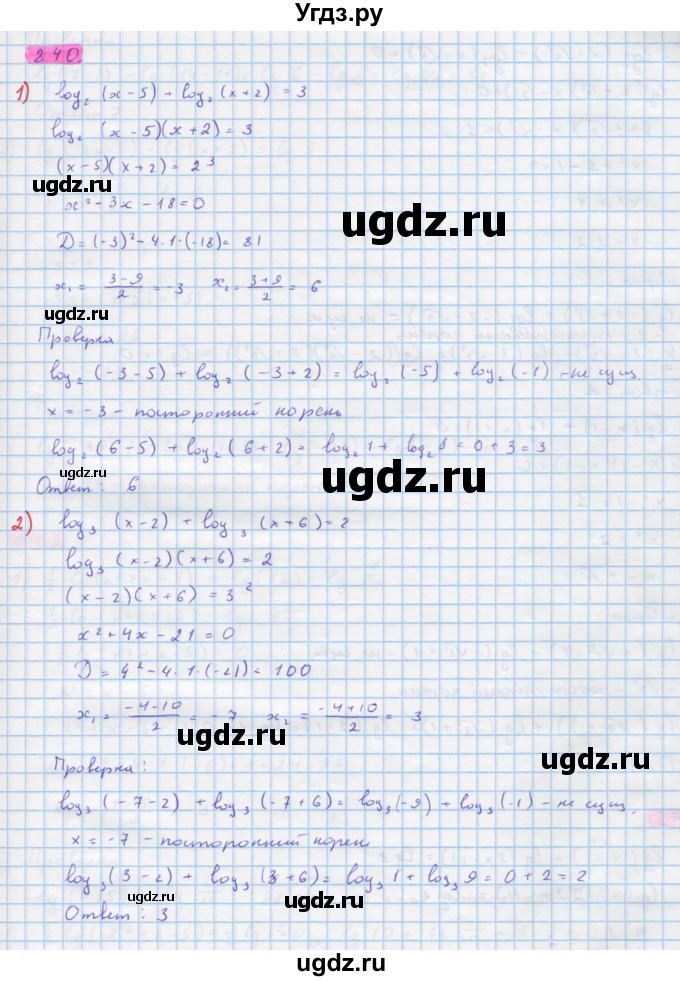 Угдз.ру
840.
1) log₂ (x-5) + log₂ (x+2) = 3
log₂ (x-5)(x+2) = 3
(x-5)(x+2) = 2³
ugdz.ru
x² - 3x - 18 = 0
ugdz.ru
D = (-3)² - 4·1·(-18) = 81
ugdz.ru
x₁ = (3-9)/2 = -3 x₂ = (3+9)/2 = 6
ugdz.ru
Проверка
log₂ (-3-5) + log₂ (-3+2) = log₂ (-5) + log₂ (-1) - не сущ.
x = -3 - посторонний корень
log₂ (6-5) + log₂ (6+2) = log₂ 1 + log₂ 8 = 0 + 3 = 3
ugdz.ru
Ответ: 6
2) log₃ (x-2) + log₃ (x+6) = 2
log₃ (x-2)(x+6) = 2
ugdz.ru
(x-2)(x+6) = 3²
x² + 4x - 21 = 0
D = 4² - 4·1·(-21) = 100
x₁ = (-4-10)/2 = -7 x₂ = (-4+10)/2 = 3
ugdz.ru
ugdz.ru
Проверка:
log₃ (-7-2) + log₃ (-7+6) = log₃ (-9) + log₃ (-1) - не сущ.
x = -7 - посторонний корень
log₃ (3-2) + log₃ (3+6) = log₃ 1 + log₃ 9 = 0 + 2 = 2
ugdz.ru
ugdz.ru
Ответ: 3
ugdz.ru